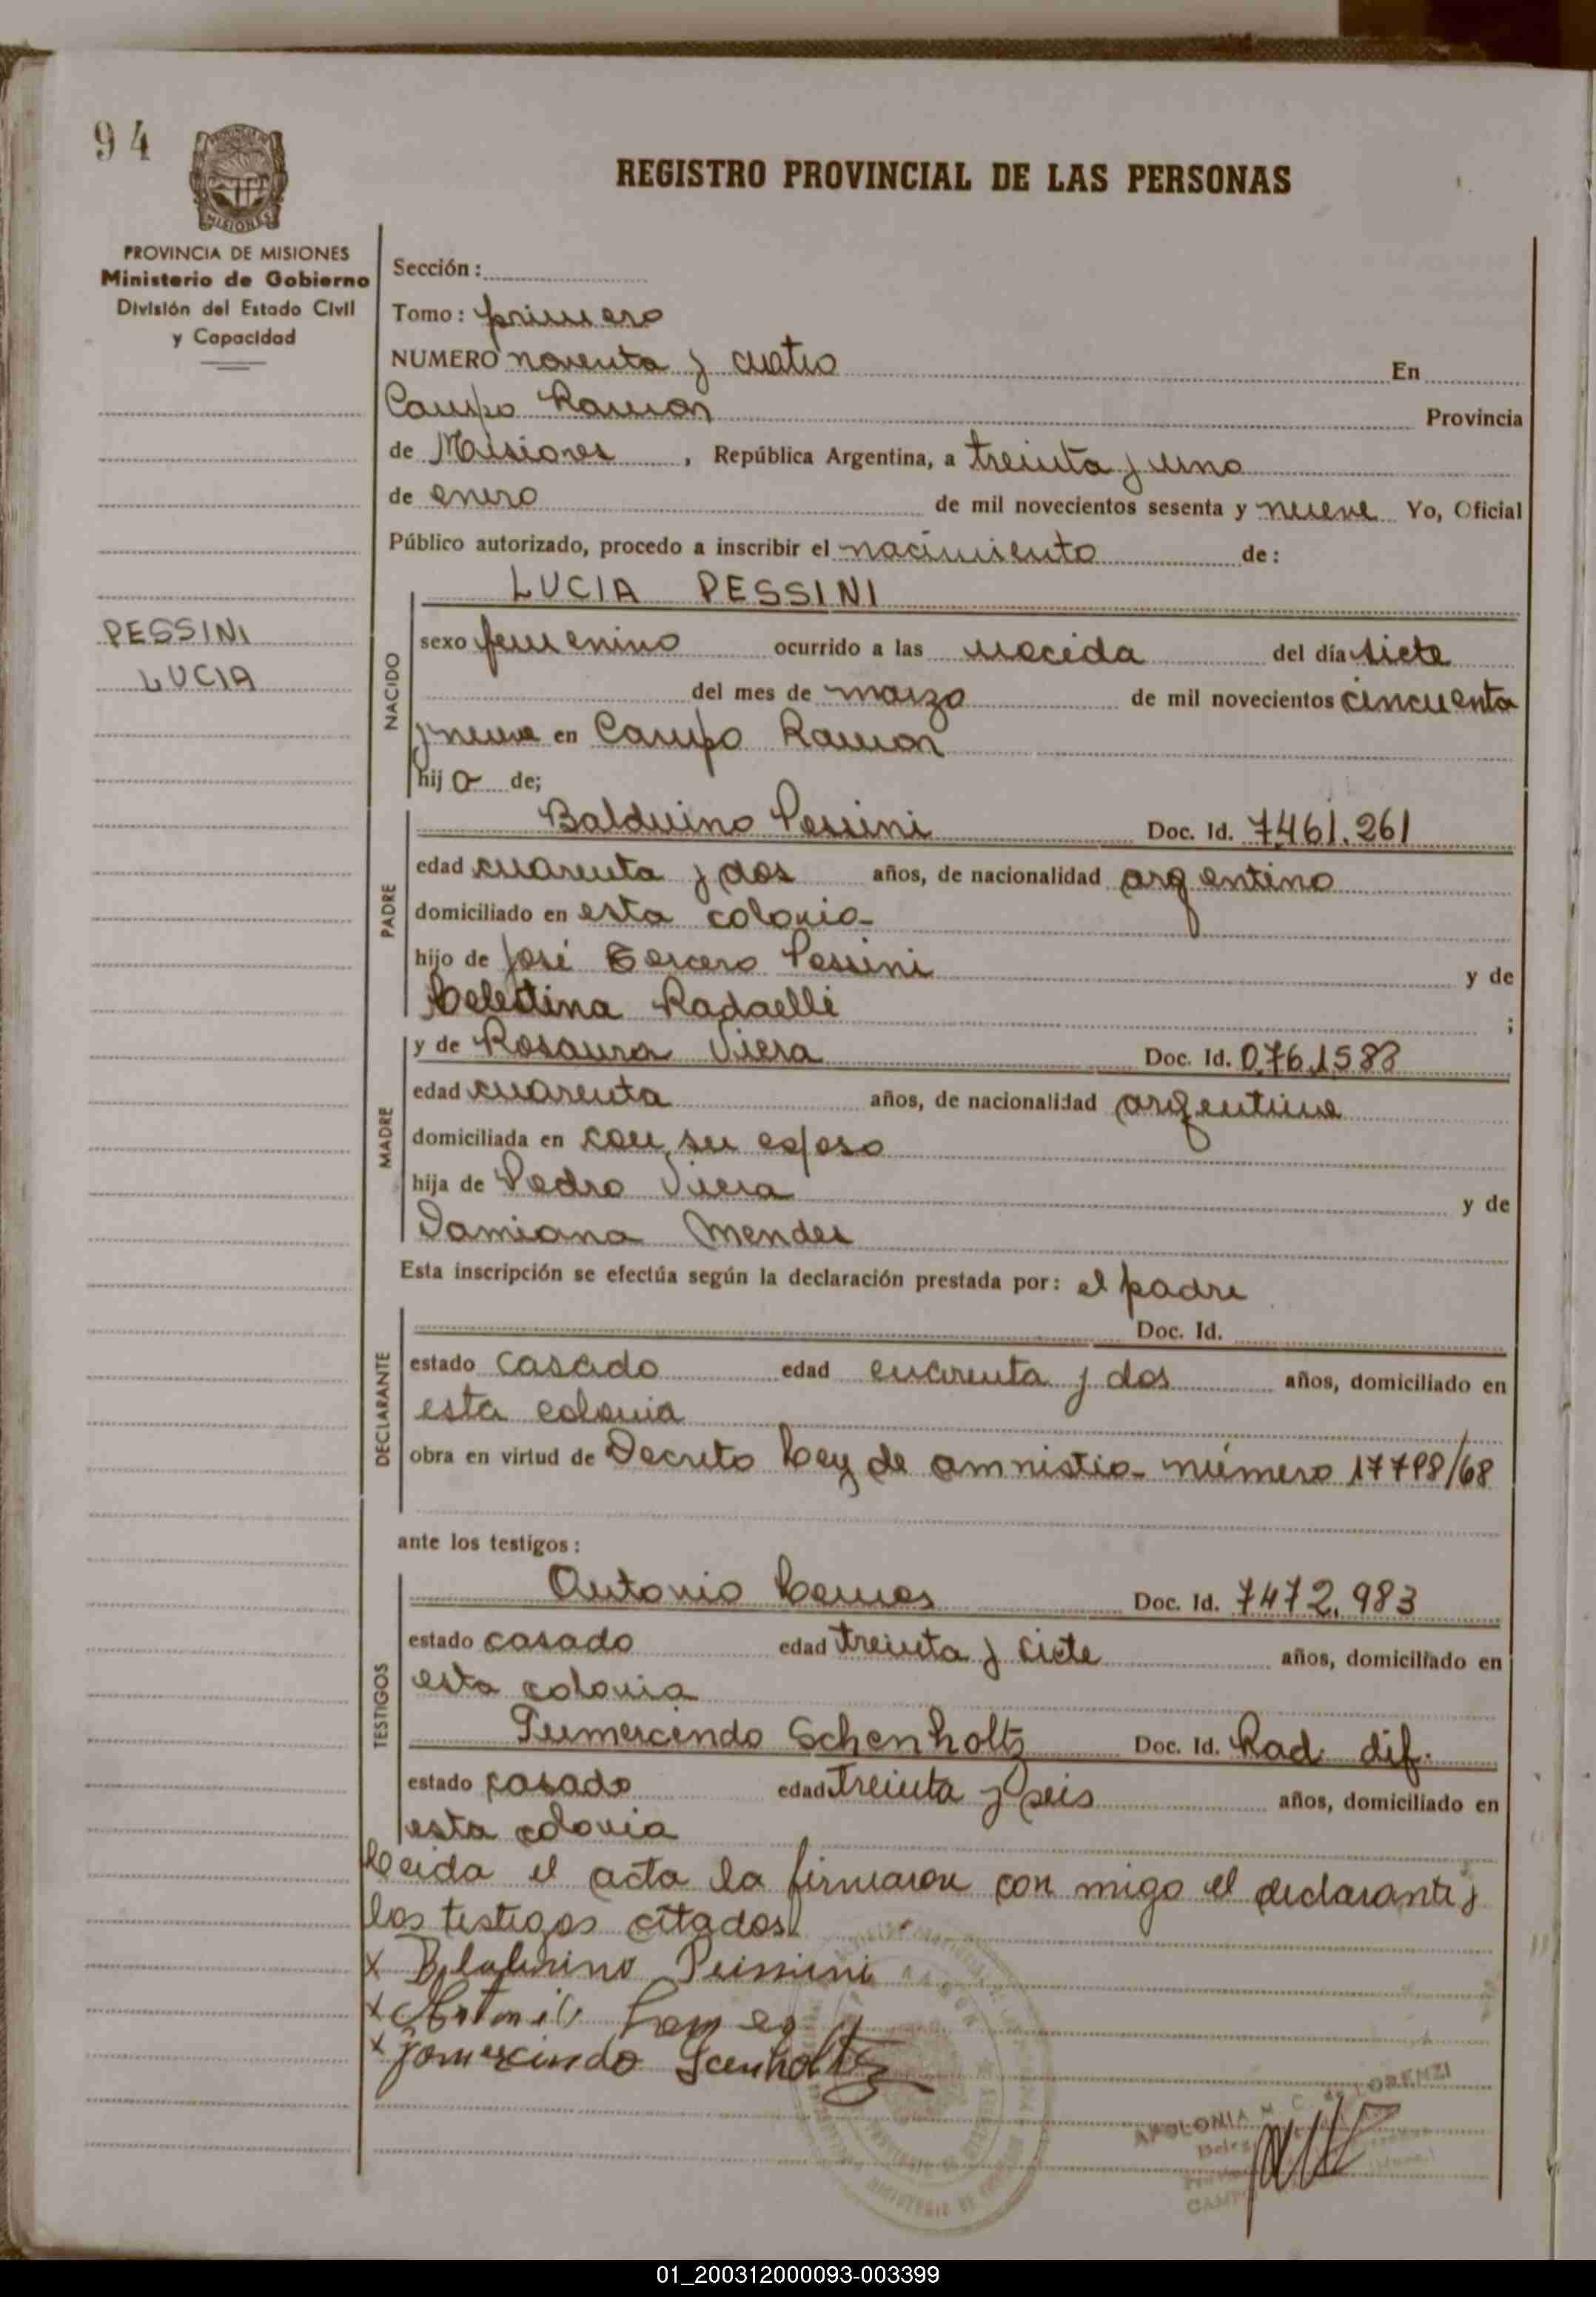 94
REGISTRO PROVINCIAL DE LAS PERSONAS
MISIONES
PROVINCIA DE MISIONES
Ministerio de Gobierno
División del Estado Civil
y Capacidad
Sección:
Tomo: primero
NUMERO noventa y cuatro En
Campo Ramon Provincia
de Misiones, República Argentina, a treinta y uno
de enero de mil novecientos sesenta y nueve Yo, Oficial
Público autorizado, procedo a inscribir el nacimiento de:
LUCIA PESSINI
PESSINI
LUCIA
NACIDO
sexo femenino ocurrido a las nacida del día siete
del mes de marzo de mil novecientos cincuenta
y nueve en Campo Ramon
hij a de;
PADRE
Balduino Pessini Doc. Id. 7.461.261
edad cuarenta y dos años, de nacionalidad argentino
domiciliado en esta colonia
hijo de José Tercero Pessini y de
Celestina Radaelli ;
MADRE
y de Rosaura Viera Doc. Id. 0.761.588
edad cuarenta años, de nacionalidad argentina
domiciliada en con su esposo
hija de Pedro Viera y de
Damiana Mendes
Esta inscripción se efectúa según la declaración prestada por: el padre
DECLARANTE
Doc. Id.
estado casado edad cuarenta y dos años, domiciliado en
esta colonia
obra en virtud de Decreto Ley de amnistia número 17798/68
ante los testigos:
TESTIGOS
Antonio Lemes Doc. Id. 7.472.983
estado casado edad treinta y siete años, domiciliado en
esta colonia
Gumercindo Schenholtz Doc. Id. Rad. dif.
estado casado edad treinta y seis años, domiciliado en
esta colonia
Leida el acta la firmaron con migo el declarante y
los testigos citados
x Pessini
x
x Gomercindo Scenholtz
APOLONIA M. C. de LORENZI
01_200312000093-003399